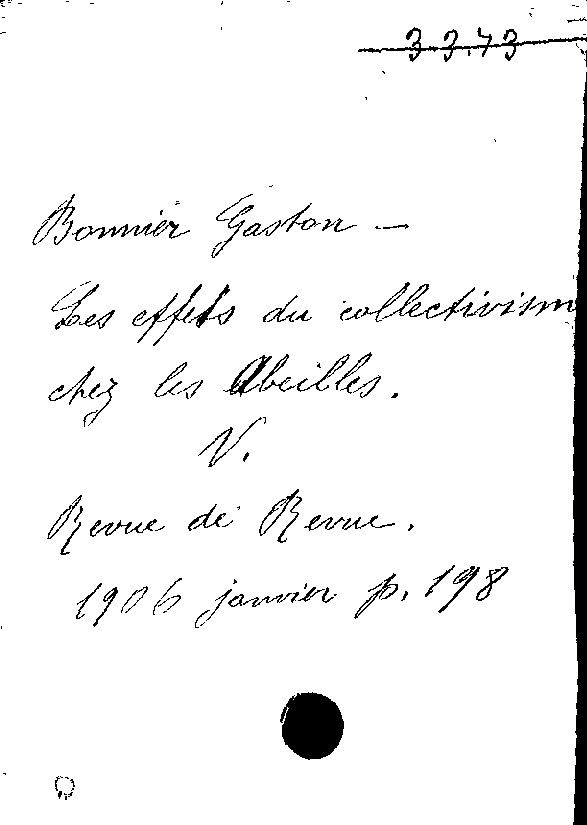 33.73
Bonnier Gaston —
Les effets du collectivism
chez les Abeilles.
V.
Revue de Revue.
1906 janvier p. 198